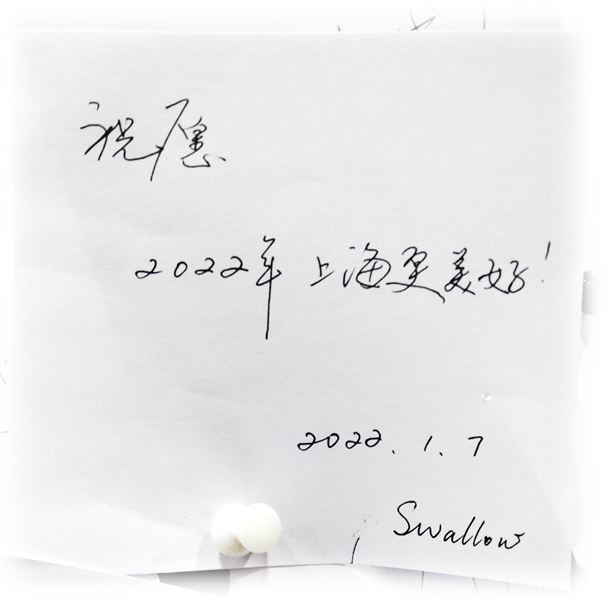 祝愿
2022年 上海更美好!
2022.1.7
Swallow